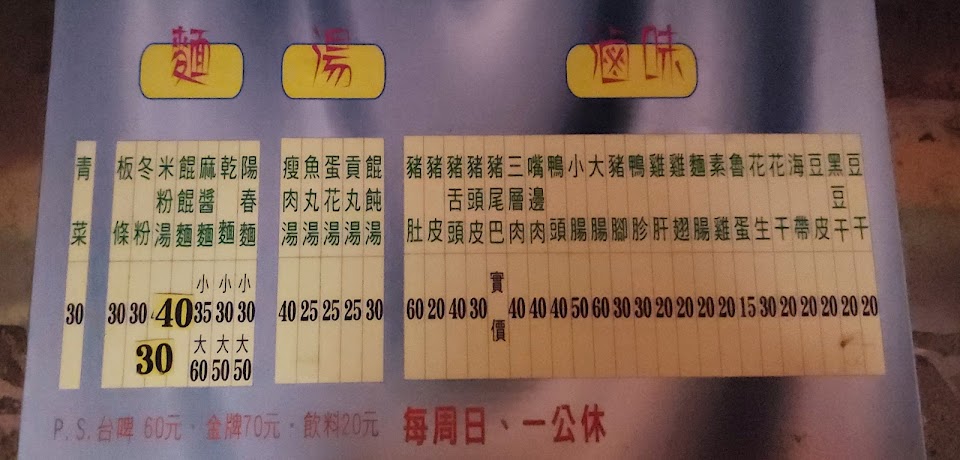 麵
湯
滷味
青菜 30
板條 30
冬粉 30
米粉湯 30
餛餛麵 40
麻醬麵 小35 大60
乾麵 小30 大50
陽春麵 小30 大50
瘦肉湯 40
魚丸湯 25
蛋花湯 25
貢丸湯 25
餛飩湯 30
豬肚 60
豬皮 20
豬舌頭 40
豬頭皮 30
豬尾巴 實價
三層肉 40
嘴邊肉 40
鴨頭 40
小腸 50
大腸 60
豬腳 30
鴨胗 30
雞肝 20
雞翅 20
麵腸 20
素雞 20
魯蛋 15
花生 30
花干 20
海帶 20
豆皮 20
黑豆干 20
豆干 20
P.S.台啤 60元·金牌70元·飲料20元
每周日、一公休